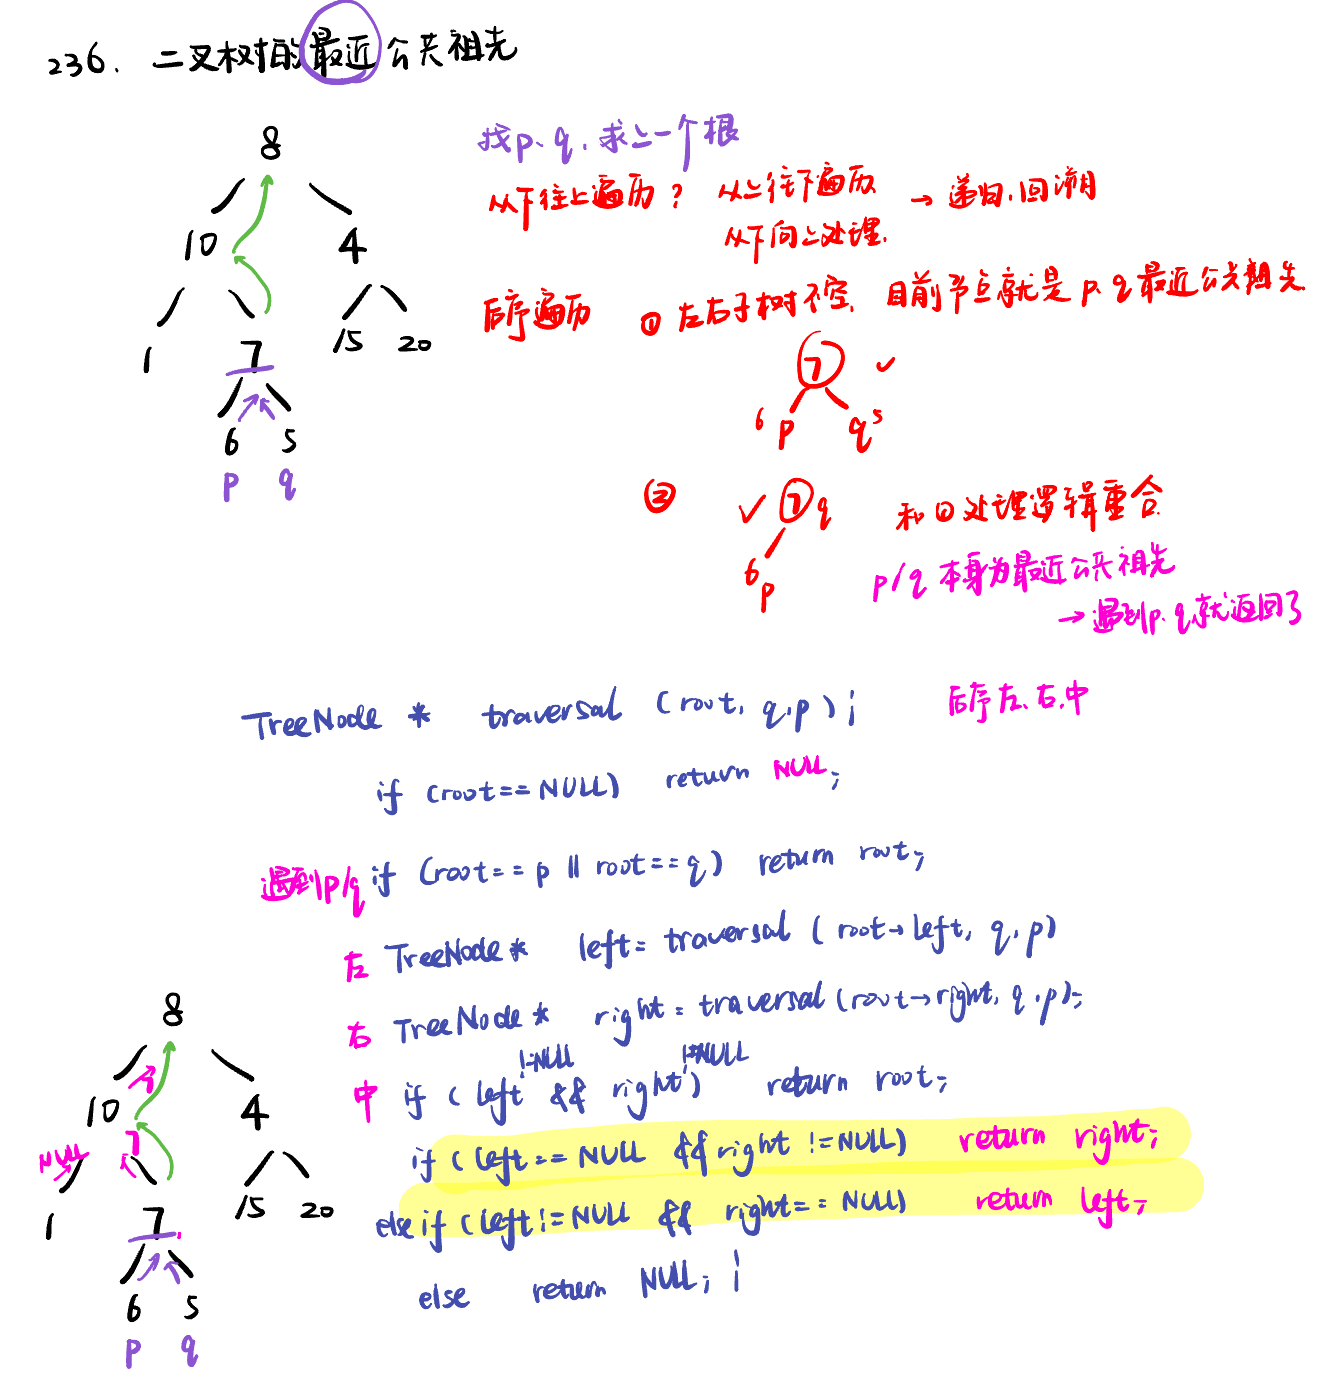 236. 二叉树的最近公共祖先
8
10 4
1 7 15 20
6 5
p q
找p、q,求上一个根
从下往上遍历? 从上往下遍历 → 递归,回溯
从下向上处理.
后序遍历 ① 左右子树不空, 目前节点就是 p.q 最近公共祖先
7 ✓
6 p q 5
② ✓ 7 q 和①处理逻辑重合
6 p
p/q 本身为最近公共祖先
→ 遇到p.q.就返回了
TreeNode * traversal (root, q,p) ; 后序左、右.中
if (root==NULL) return NULL;
遇到p/q if (root== p || root==q) return root;
左 TreeNode* left= traversal ( root→left, q,p)
右 TreeNode* right= traversal(root→right, q,p);
!=NULL !=NULL
中 if ( left && right ) return root;
if ( left== NULL && right !=NULL) return right;
else if (left!=NULL && right== NULL) return left;
else return NULL; ;
8
7
10 4
NULL 7
1 7 15 20
6 5
p q